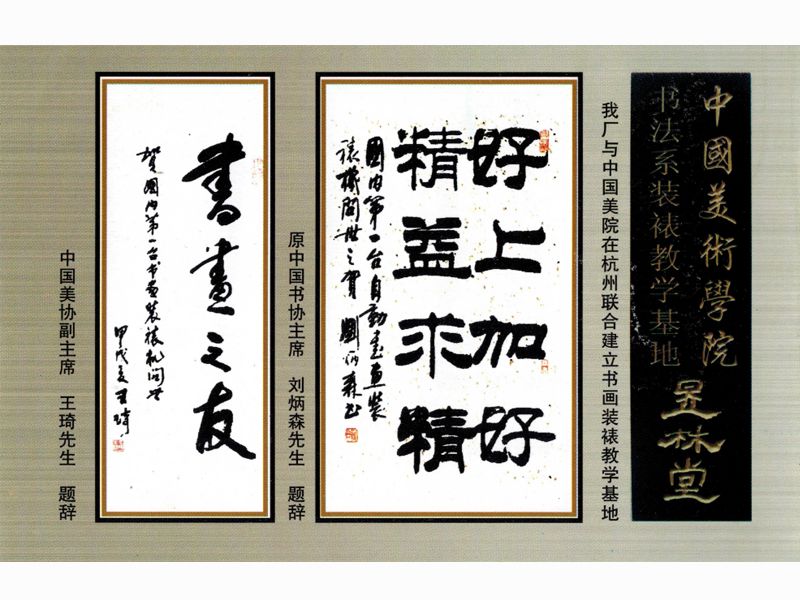 中國美術學院
书法系装裱教学基地
林堂
我厂与中国美院在杭州联合建立书画装裱教学基地
好上加好
精益求精
國内第一台自動書畫装
裱機問世之賀 劉炳森书
原中国书协主席 刘炳森先生 题辞
書畫之友
贺國内第一台书画装裱机问世
甲戌夏王琦
中国美协副主席 王琦先生 题辞